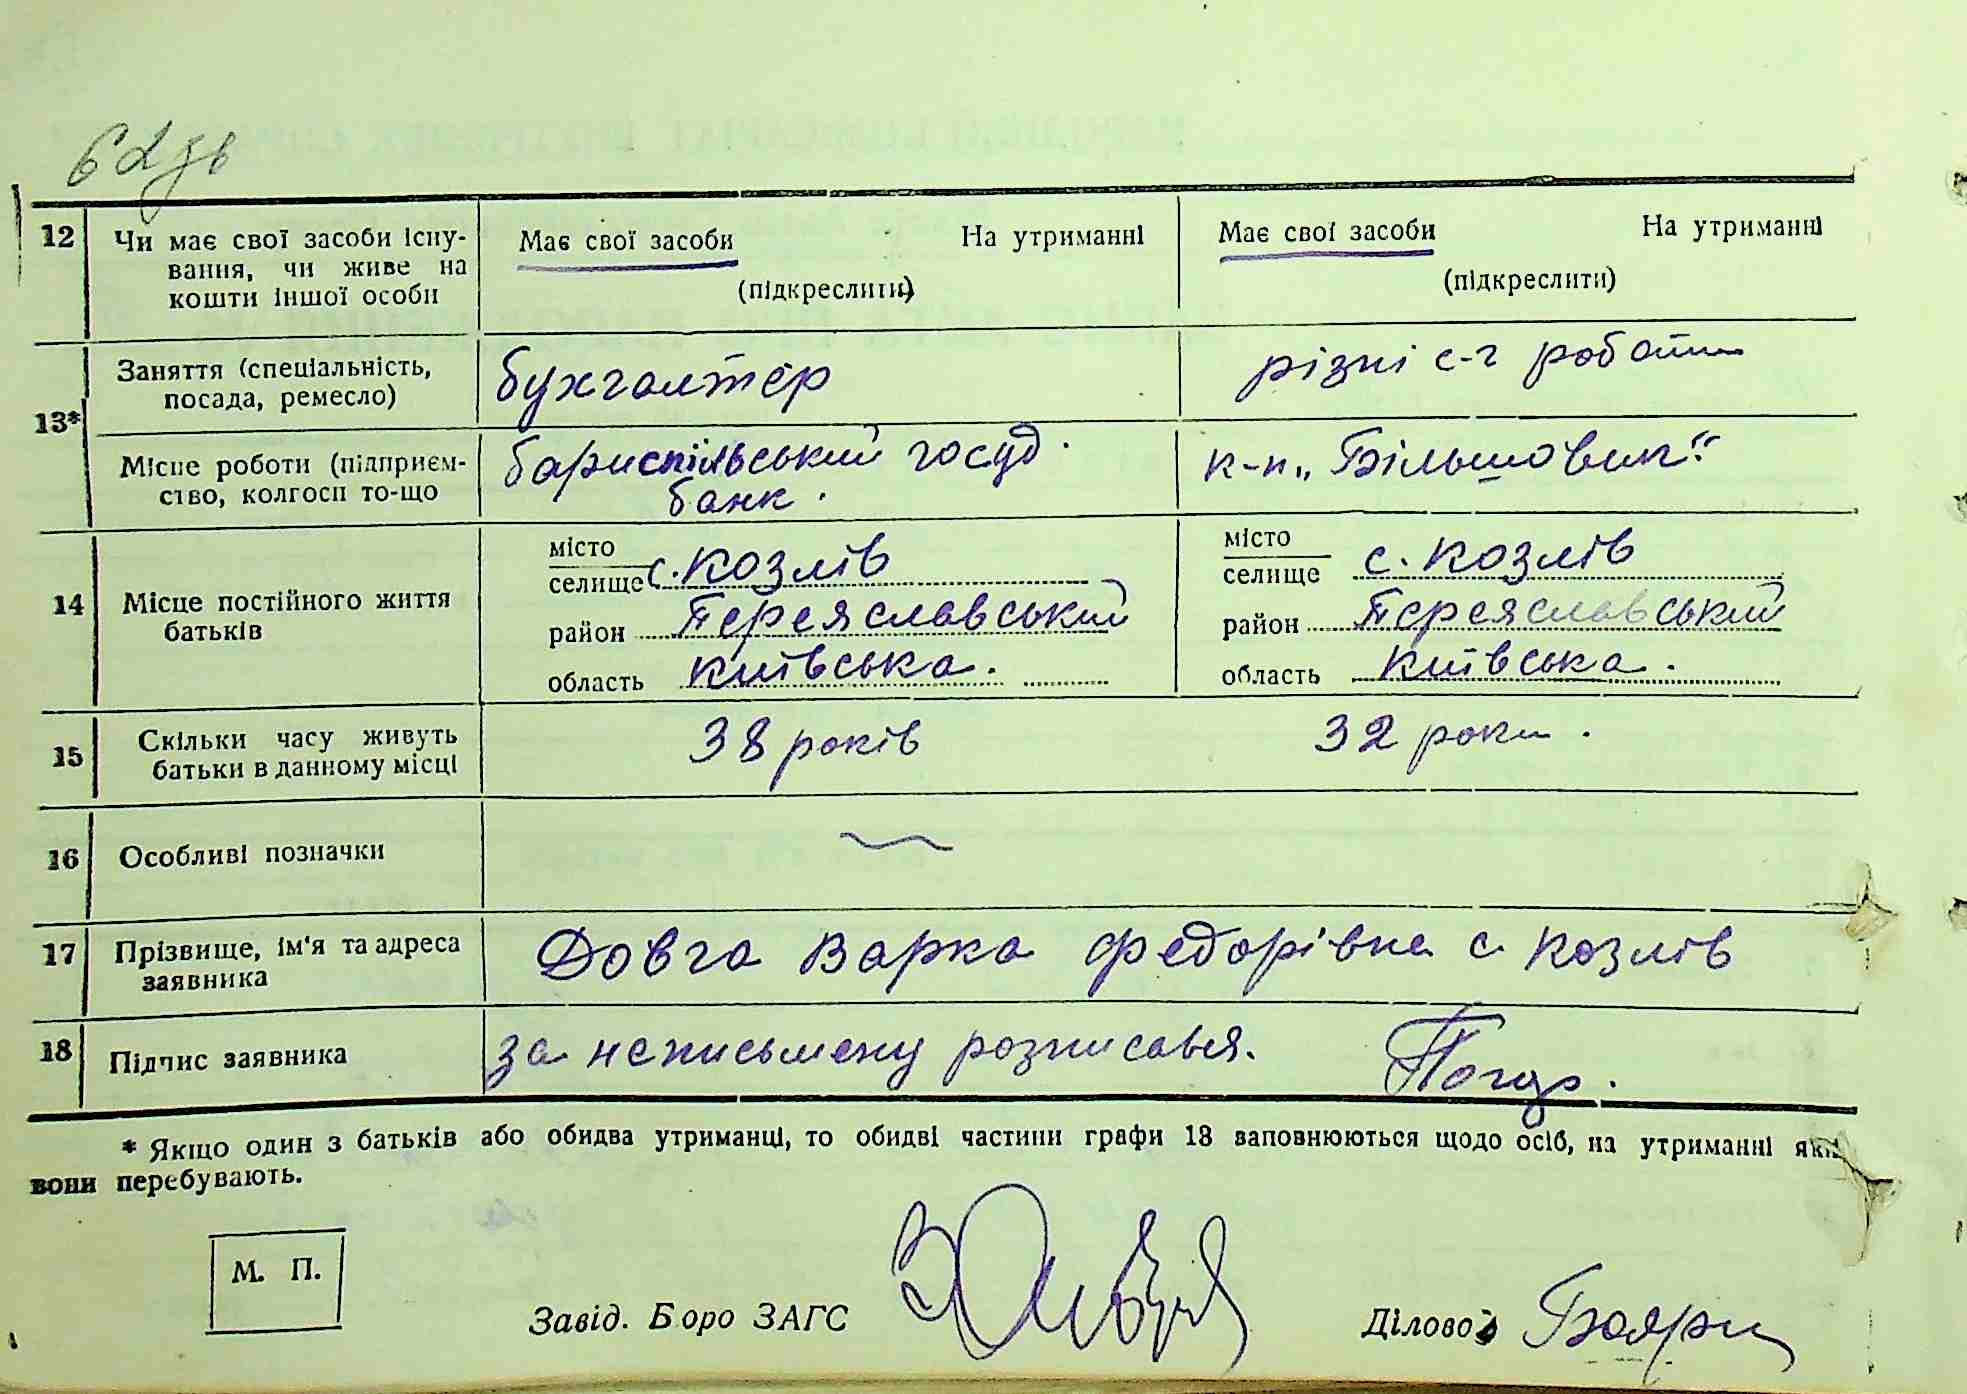 62 зв
12 Чи має свої засоби існу-
вання, чи живе на
кошти іншої особи
Має свої засоби На утриманні
(підкреслити)
Має свої засоби На утриманні
(підкреслити)
13*
Заняття (спеціальність,
посада, ремесло)
бухгалтер
різні с-г роботи
Місце роботи (підприєм-
ство, колгосп то-що
бариспільський госуд.
банк.
к-п „Більшовик“
14 Місце постійного життя
батьків
місто
селище с. Козлів
район Переяславський
область Київська.
місто
селище с. Козлів
район Переяславський
область Київська.
15 Скільки часу живуть
батьки в данному місці
38 років
32 роки.
16 Особливі позначки
17 Прізвище, ім'я та адреса
заявника
Довга Варка Федорівна с. Козлів
18 Підпис заявника
за неписьмену розписався.
* Якщо один з батьків або обидва утриманці, то обидві частини графи 13 заповнюються щодо осіб, на утриманні яких
вони перебувають.
М. П.
Завід. Бюро ЗАГС
Діловод